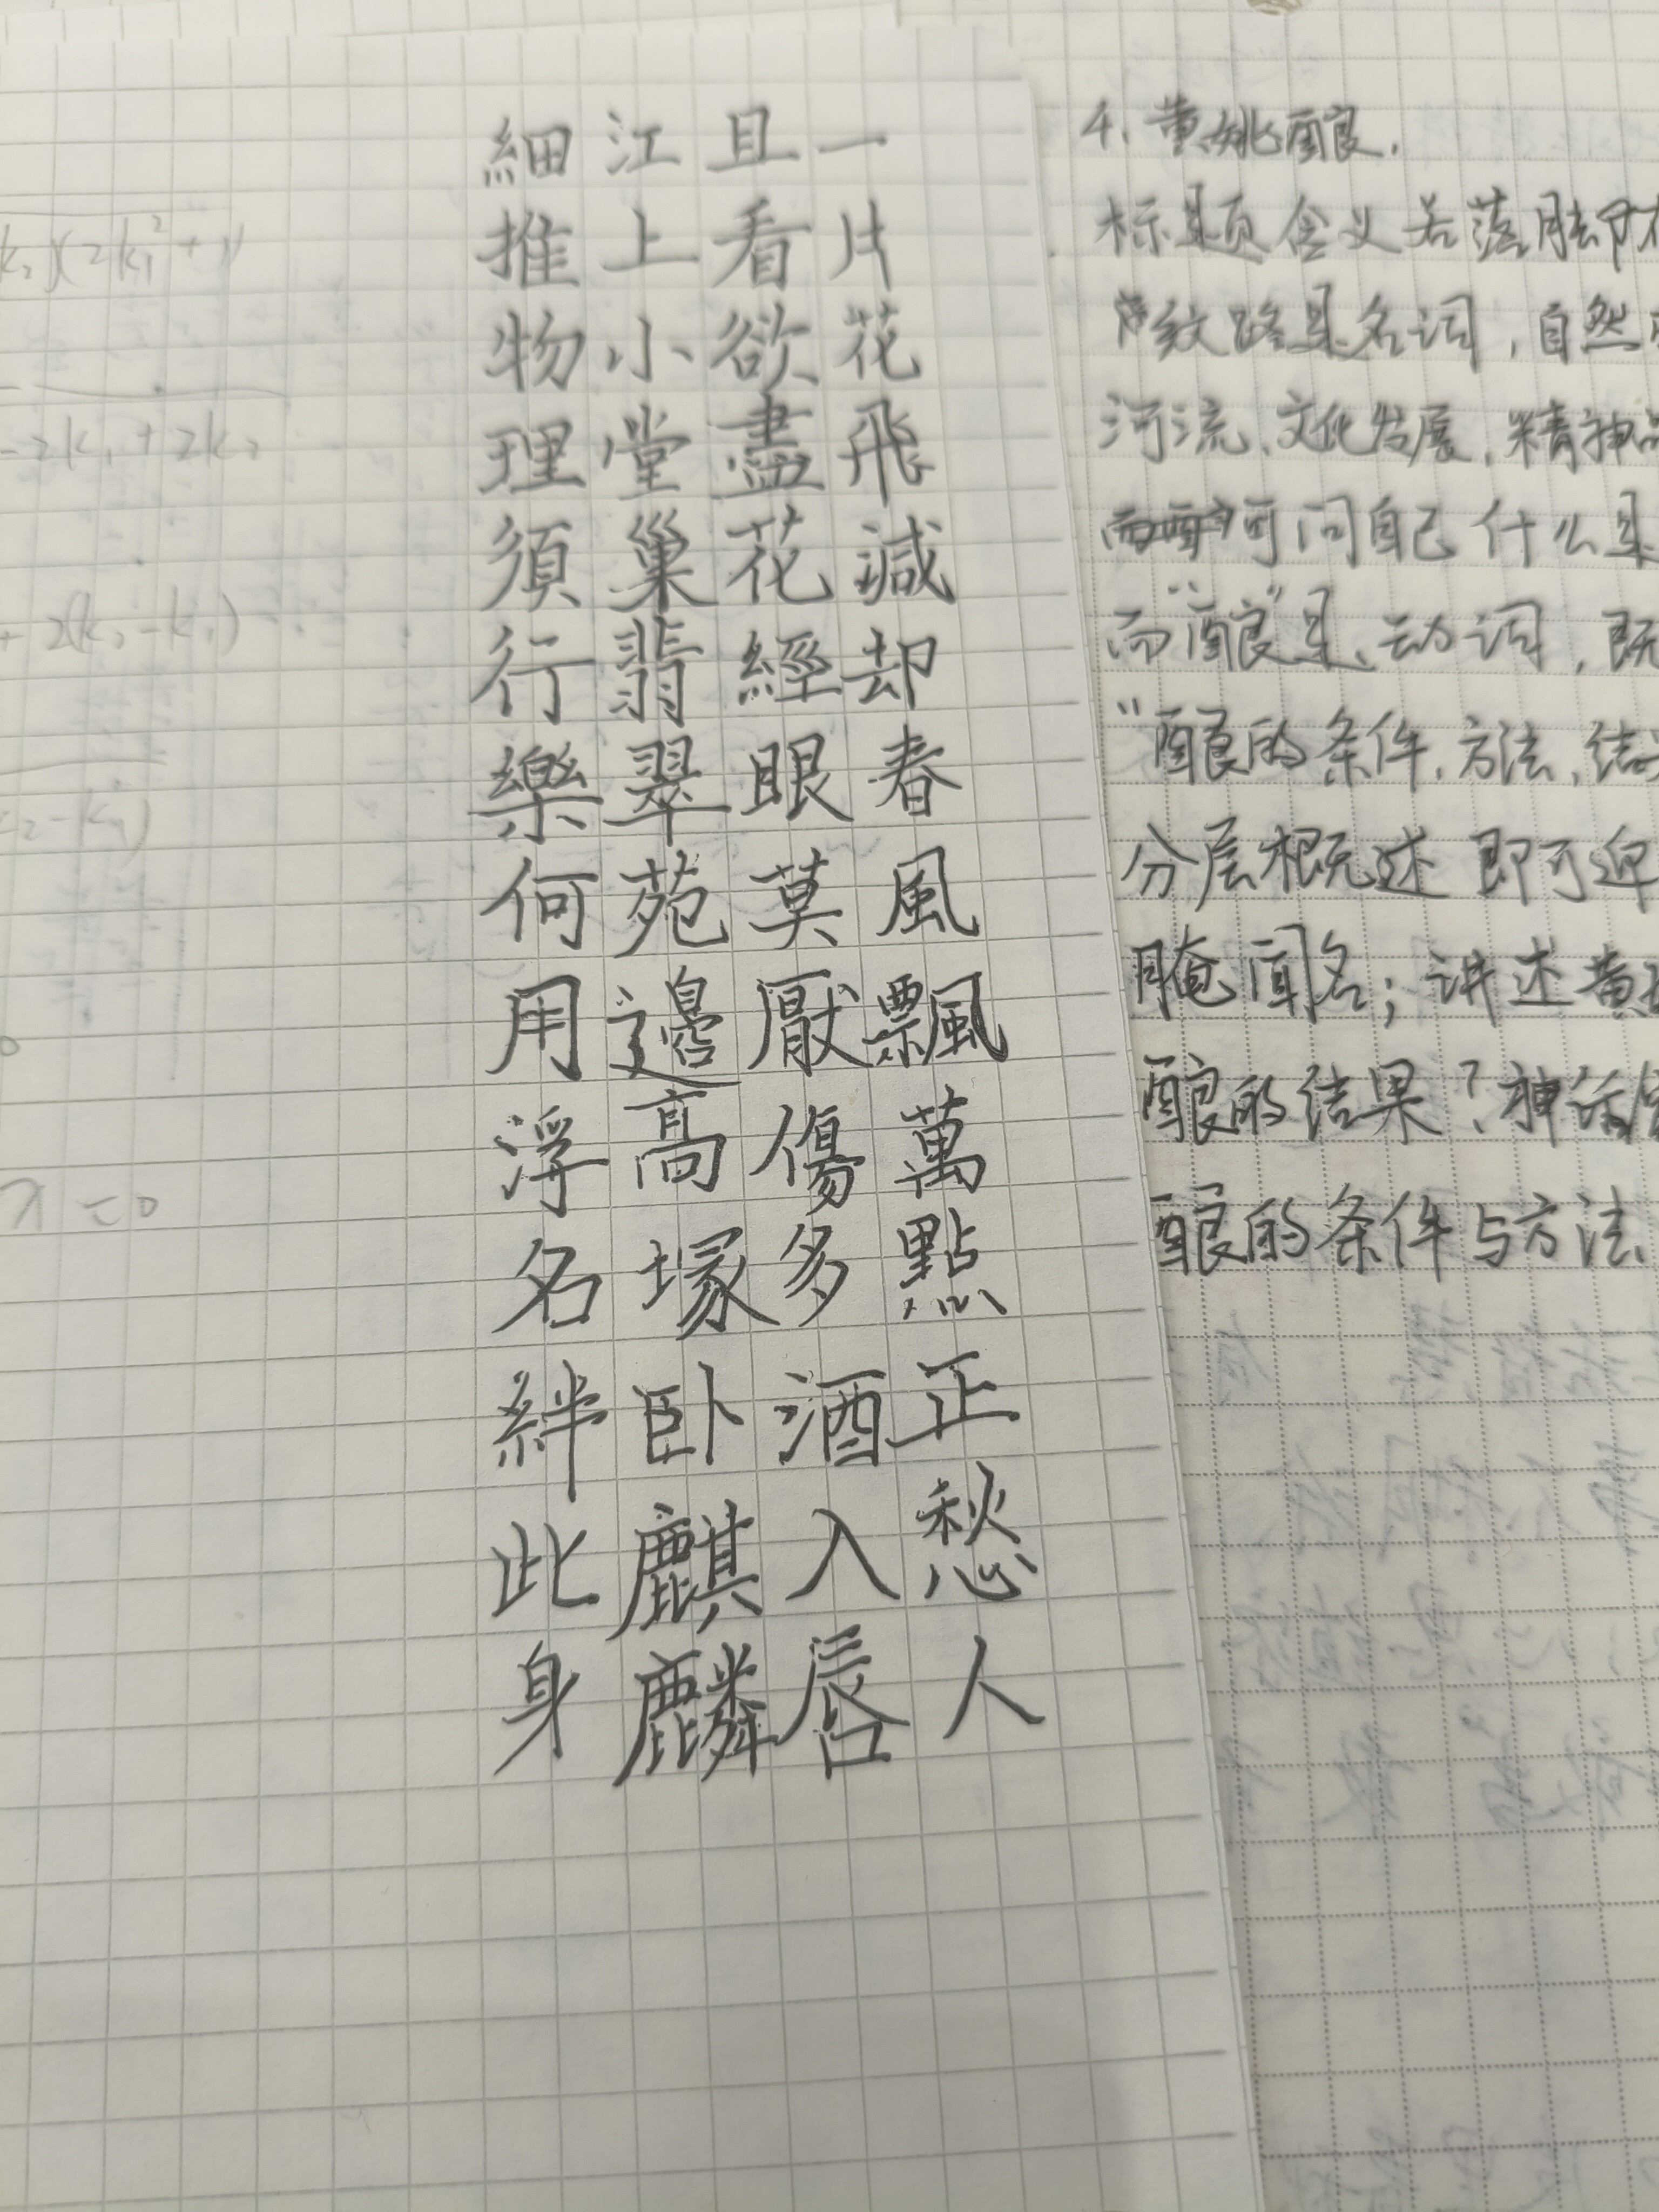 一片花飛減却春風飄萬點正愁人
且看欲盡花經眼莫厭傷多酒入唇
江上小堂巢翡翠苑邊高塚卧麒麟
細推物理須行樂何用浮名絆此身
4. 黄姚酿.
标题含义 若落脚即在
声纹路是名词，自然
河流、文化发展，精神
可问自己什么是
而"酿"是动词，既
"酿的条件，方法，结
分层概述 即可迎
腌闻名；讲述黄
酿的结果？神
酿的条件与方法
k₂)(2k₁²+1)
-2k₁+2k₂
+2(k₂-k₁)
=0